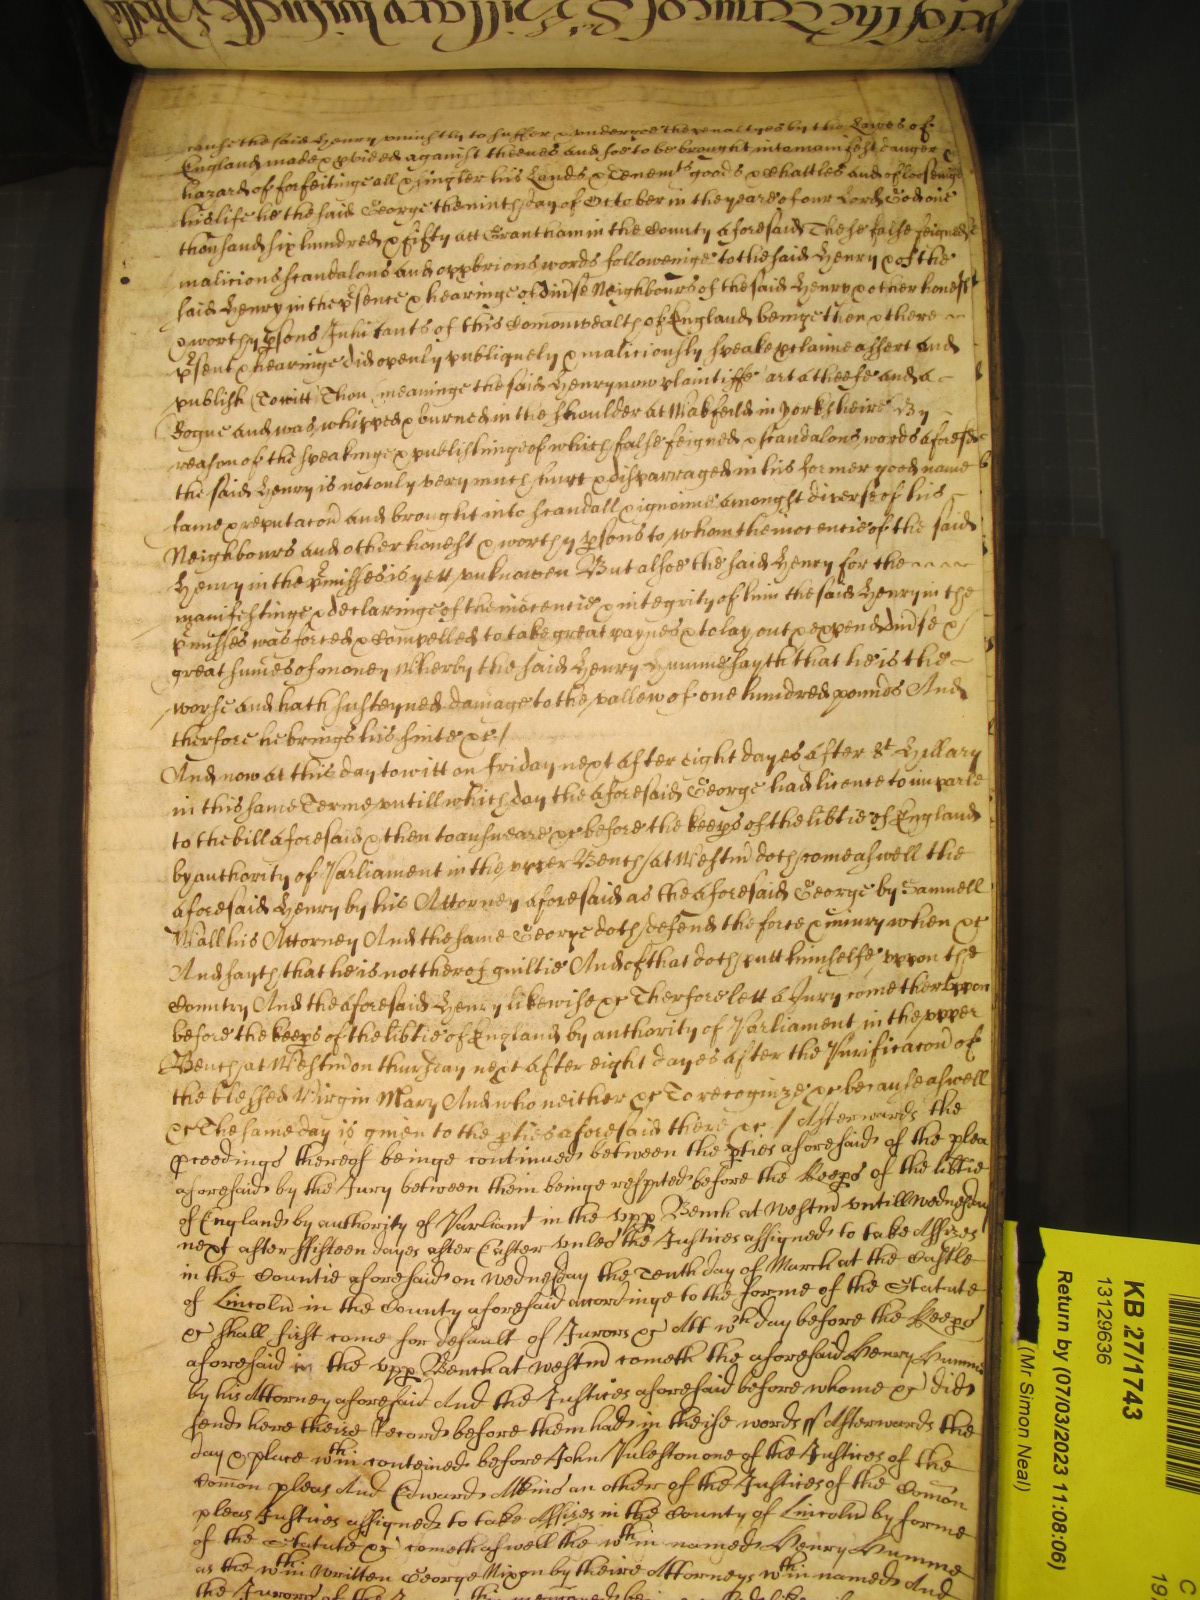 cause the said Henry uniustly to suffer & undergoe the penaltyes by the Lawes of
England made & pvided against theeves and soe to be brought into manifest danger &
hazard of forfeitinge all & singler his Lands & Tenemts goods & Chattles and of looseinge
his life he the said George the ninth day of October in the yeare of our Lord God one
thousand six hundred & fifty att Grantham in the County aforesaid These false feigned
malicious scandalous and opprbrious words followeinge to the said Henry & of the
said Henry in the psence & hearinge of divse Neighbours of the said Henry & other honest
& worthy psons Inhitants of this Comonwealth of England beinge then & there
psent & hearinge did openly publiquely & maliciously speake pclaime assert and
publish (To witt) Thou (meaninge the said Henry now plaintiffe) art a theefe and a
Rogue and was whipped & burned in the shoulder at Wakfeild in Yorksheire By
reason of the speakinge & publishinge of which false feigned & scandalous words aforesd
the said Henry is not only very much hurt & disparraged in his former good name
fame & reputacon and brought into scandall & ignomie amongst diverse of his
Neighbours and other honest & worthy psons to whom the inocencie of the said
Henry in the pmisses is yett unknowen But alsoe the said Henry for the
manifestinge & declaringe of the inocencie & integrity of him the said Henry in the
pmisses was forced & Compelled to take great paynes & to lay out & expend divse &
great sumes of money Wherby the said Henry Humme sayth that he is the
worse and hath susteyned damage to the vallew of one hundred pounds And
therfore he brings his suite &c /
And now at this day to witt on friday next after eight dayes after St Hillary
in this same Terme untill which day the aforesaid George had licence to imparle
to the bill aforesaid & then to answeare &c before the keeps of the libtie of England
by authority of Parliament in the upper Bench at Westm doth come aswell the
aforesaid Henry by his Attorney aforesaid as the aforesaid George by Samuell
Wall his Attorney And the same George doth defend the force & iniury when &c
And sayth that he is not therof guiltie And of that doth putt himselfe uppon the
Country And the aforesaid Henry likewise &c Therfore lett a Jury come therupon
before the keeps of the libtie of England by authority of Parliament in the upper
Bench at Westm on thursday next after eight dayes after the Purificacon of
the blessed Virgin Mary And who neither &c To recognize &c because aswell
&c The same day is given to the pties aforesaid there &c / Afterwards the
pceedings thereof beinge continued between the pties aforesaid of the plea
aforesaid by the Jury between them beinge respited before the Keeps of the libtie
of England by authority of Parliamt in the upp Bench at Westm untill Wednesday
next after ffifteen dayes after Easter unles the Justices assigned to take Assizes
in the Countie aforesaid on Wednesday the Tenth day of March at the Castle
of Lincoln in the County aforesaid accordinge to the forme of the Statute
&c shall first come for default of Jurors &c Att wch day before the Keeps
aforesaid in the upp Bench at Westm cometh the aforesaid Henry Humme
by his Attorney aforesaid And the Justices aforesaid before whome &c did
send here theire Record before them had in theise words // Afterwards the
day & place within conteined before John Puleston one of the Justices of the
Comon pleas And Edward Atkins an other of the Justices of the Comon
pleas Justices assigned to take Assizes in the County of Lincoln by forme
of the Statute &c cometh aswell the within named Henry Humme
as the within written George Nixon by theire Attorneys within named And
the Jurors of the Jury
KB 27/1743
13129636
Return by (07/03/2023 11:08:06)
(Mr Simon Neal)